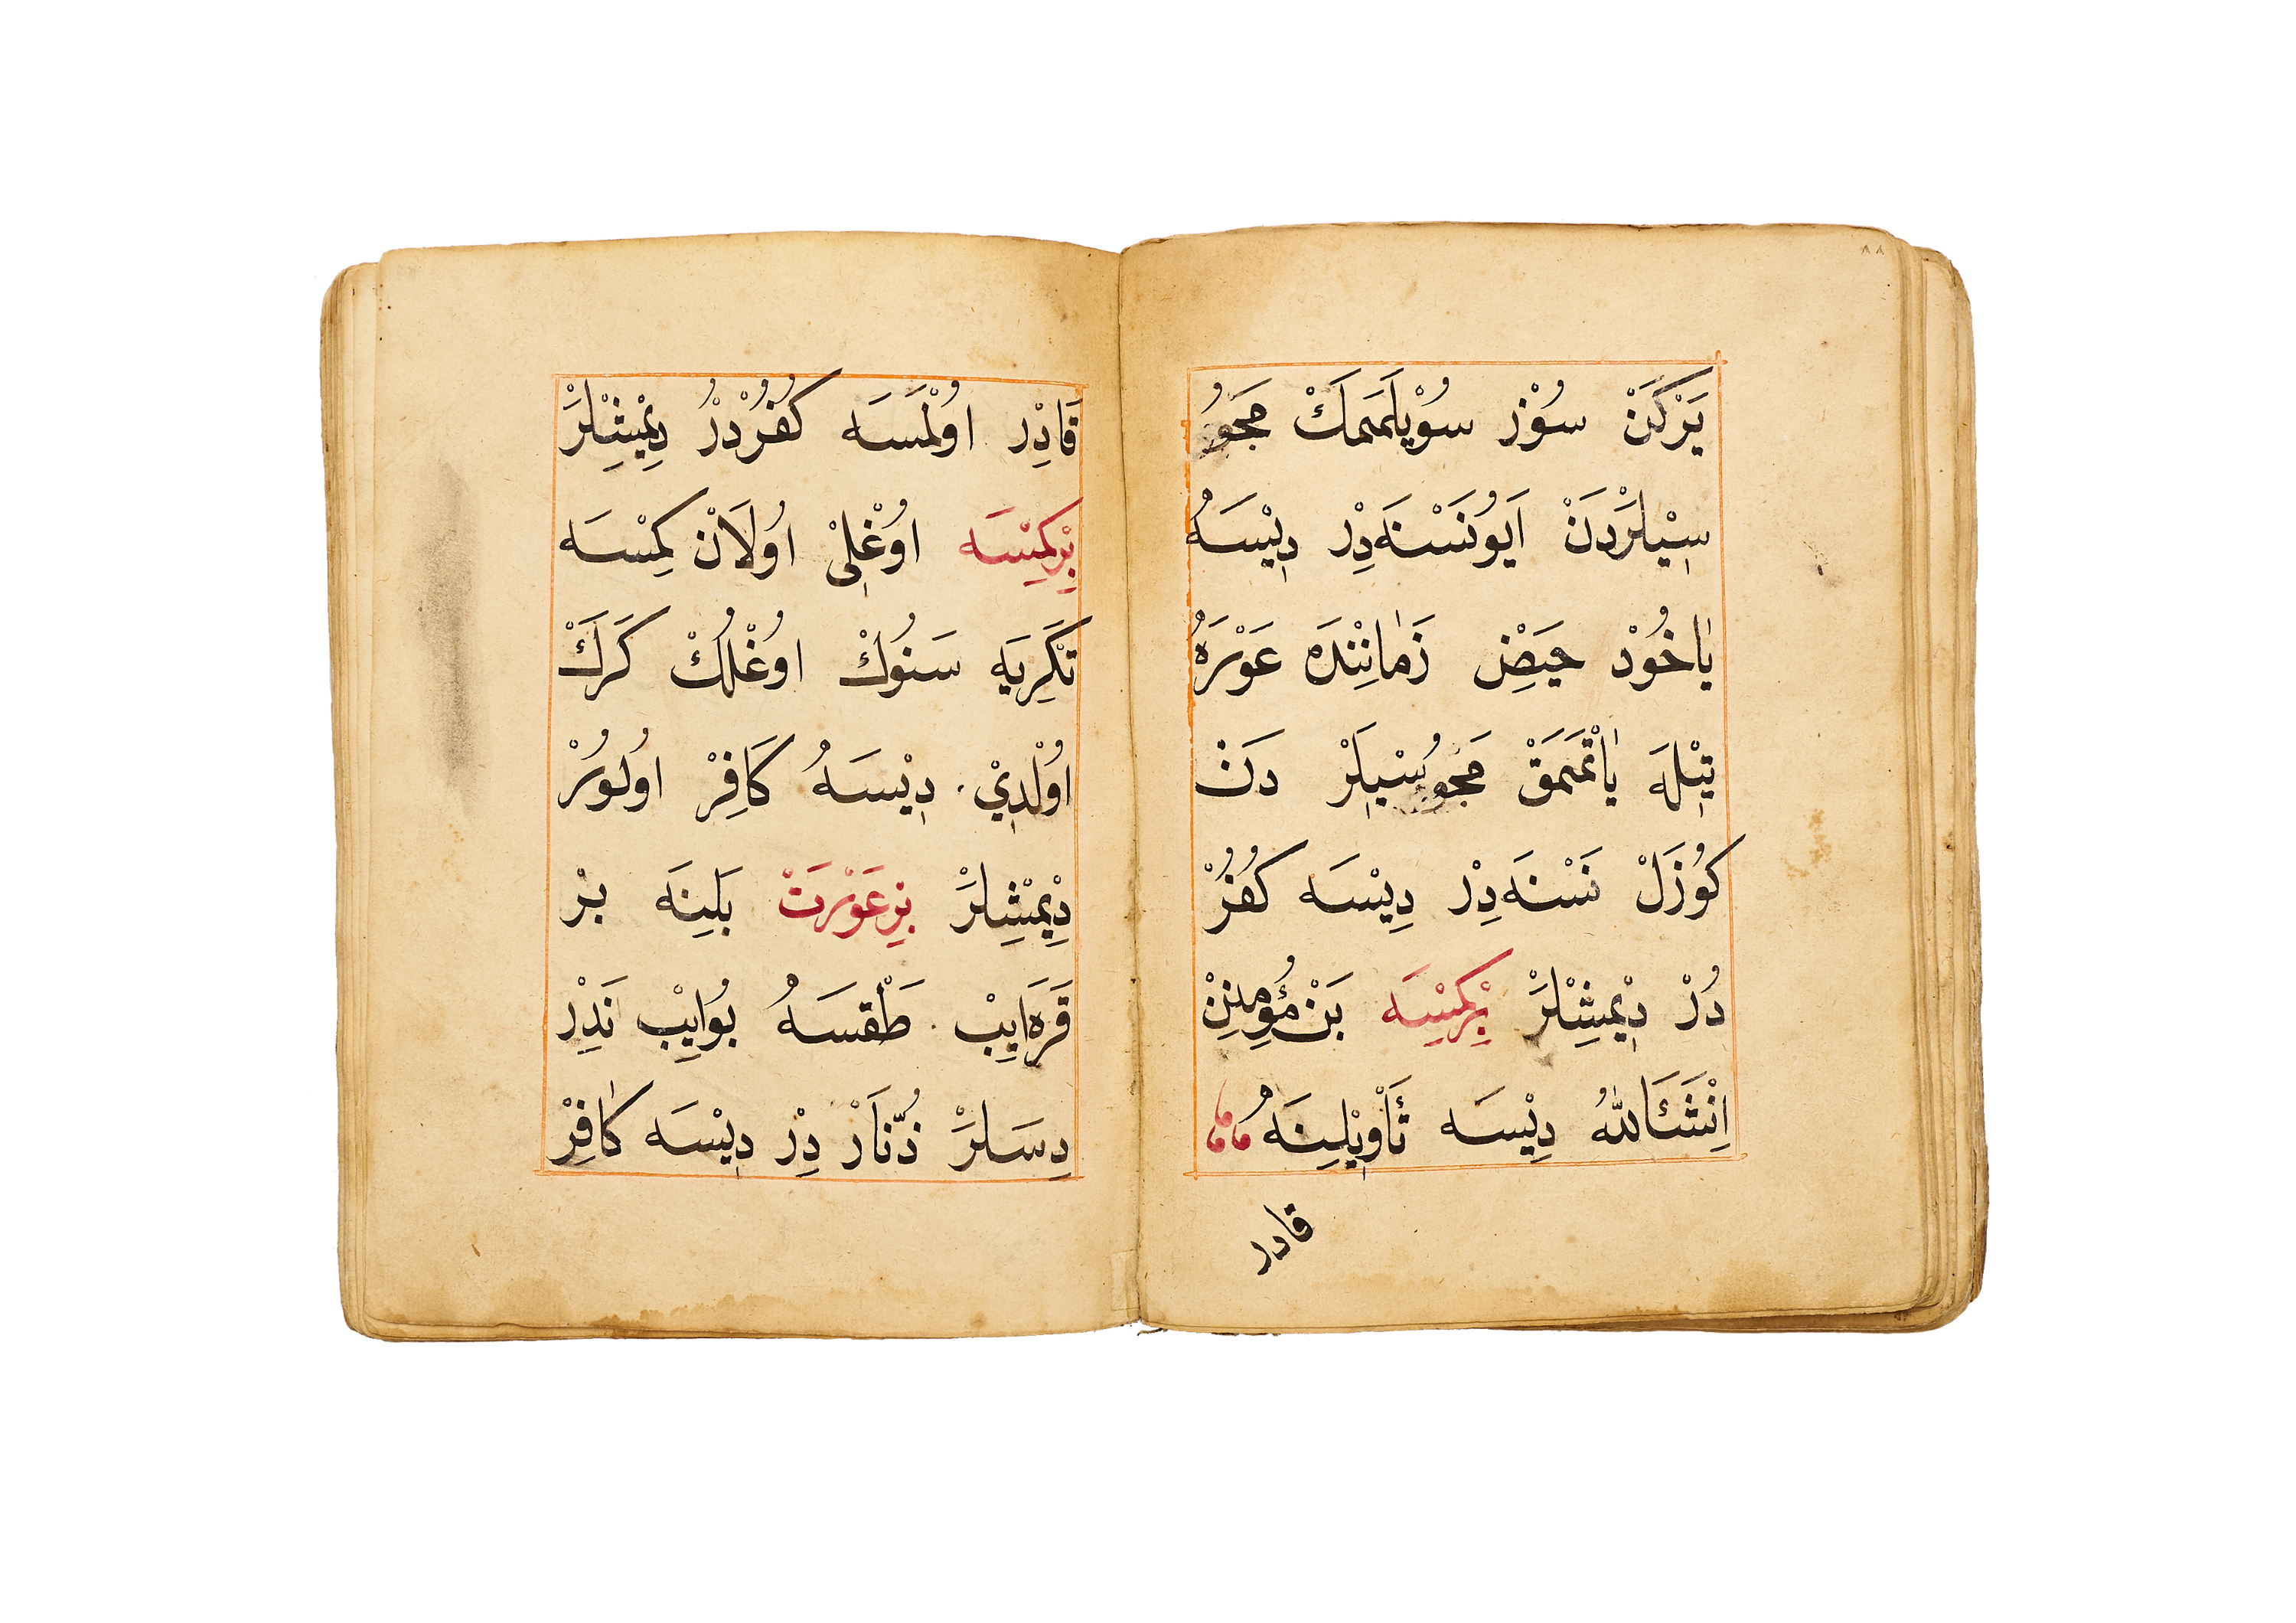 ٨٨
يَرْكَنْ سُوْز سُوْيلَمَمَكْ مَجُو
سِيْلَرْدَنْ اَيُونَسْنَه دِرْ دِيْسَه
يَاخُوْد حَيْضِ زَمَانِنْدَه عَوْرَه
تِيْلَه يَاتْمَمَقْ مَجُوسْيلَرْ دَنْ
كُوزَلْ نَسْنَه دِرْ دِيْسَه كُفُرْ
دُرْ دِيْمِشِلَرْ بِرْكِمْسَه بَنْ مُؤْمِنِنْ
اِنْشَئَاللهُ دِيْسَه تَأْوِيْلِينَه
قادر
قَادِرْ اوُلْمَسَه كُفُرْدُرْ دِيْمِشْلَرْ
بِرْكِمْسَه اوُغْلِيْ اوُلَانْ كِمْسَه
تَكْرِيَه سَنُوكْ اوُغْلُكْ كَرَكْ
اوُلْدِيْ دِيْسَه كَافِرْ اوُلُورْ
دِيْمِشِلَرْ بِرْعَوْرَتْ بَلِينَه بِرْ
قَرَه اِيبْ طَقْسَه بُوايِبْ نَدِرْ
دِسَلَرْ ذُنَّارْ دِرْ دِيْسَه كَافِرْ